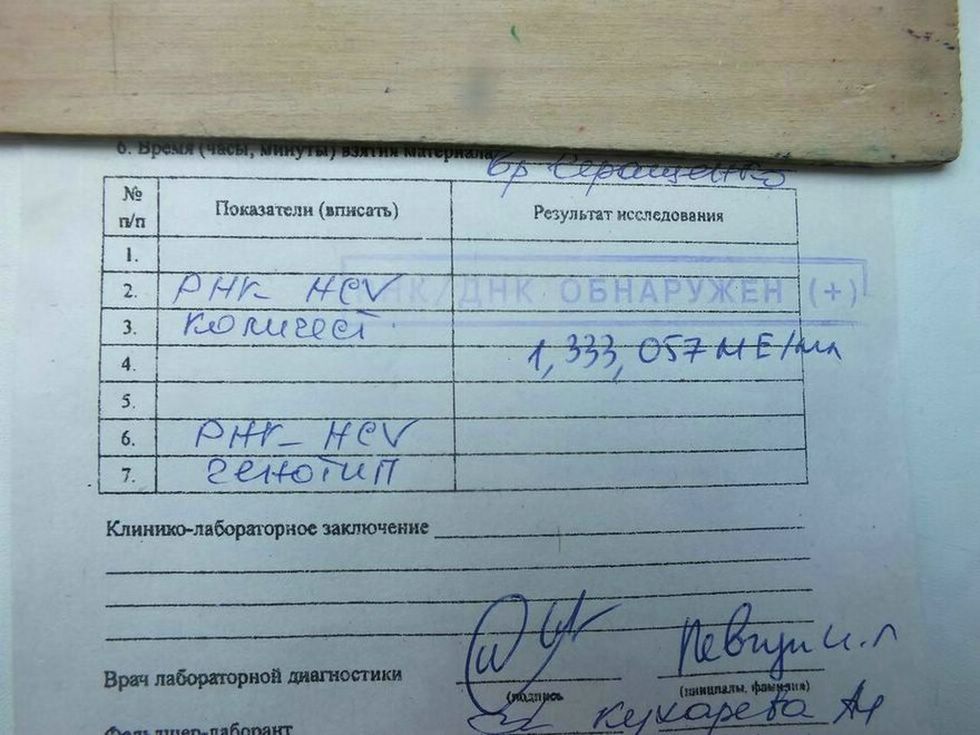 6. Время (часы, минуты) взятия материала
вр Геращенко
№ п/п Показатели (вписать) Результат исследования
1.
2. РНК- HCV РНК/ДНК ОБНАРУЖЕН (+)
3. количест.
4. 1,333,057 МЕ/мл
5.
6. РНК- HCV
7. генотип
Клинико-лабораторное заключение
Врач лабораторной диагностики
(подпись (инициалы, фамилия)
Фельдшер-лаборант Кухарева